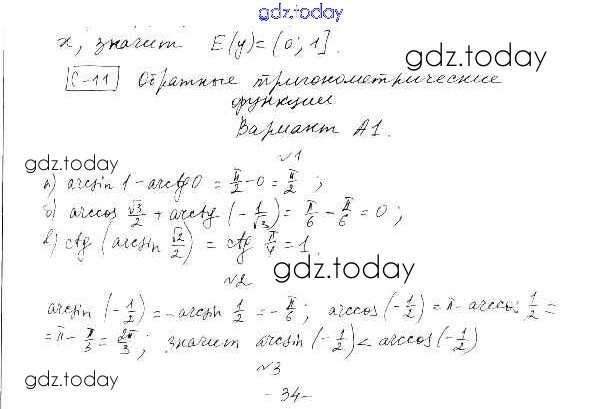 gdz.today
x, значит E(y)=(0; 1].
gdz.today
С-11 Обратные тригонометрические
функции
Вариант А1.
№1
gdz.today
а) arcsin 1 - arctg 0 = π/2 - 0 = π/2 ;
б) arccos √3/2 + arctg (-1/√3) = π/6 - π/6 = 0 ;
в) ctg (arcsin √2/2) = ctg π/4 = 1.
№2
gdz.today
arcsin (-1/2) = -arcsin 1/2 = -π/6 ; arccos (-1/2) = π - arccos 1/2 =
= π - π/3 = 2π/3 ; значит arcsin (-1/2) < arccos (-1/2)
№3
gdz.today
- 34 -
gdz.today